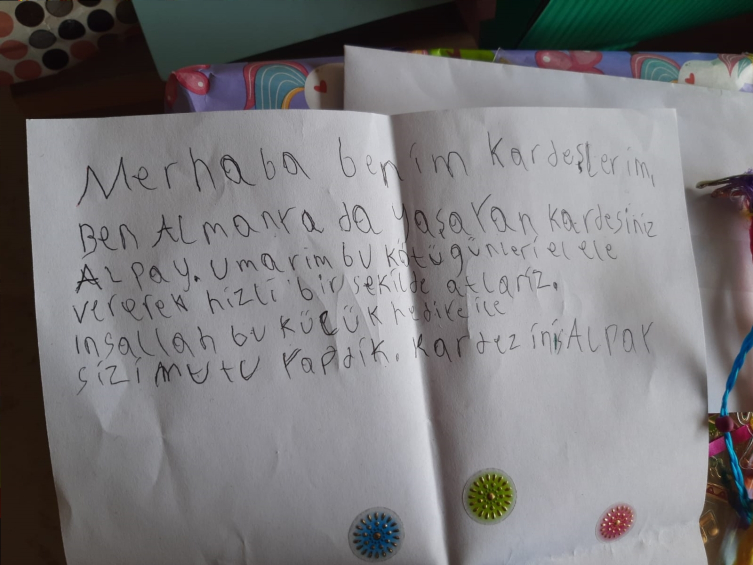 Merhaba benim Kardeşlerim,
Ben Almanya da yaşayan kardesiniz
ALPAY. Umarim bu kötü günleri el ele
vererek hizli bir sekilde atlariz.
insallah bu küçük hedike ile
sizi mutu yapdik. kardeziniz ALPAY